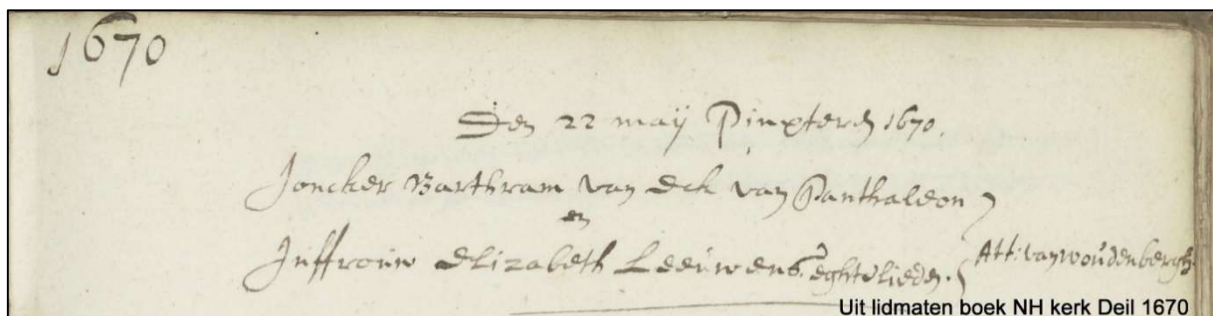 1670
Den 22 maij Pinxteren 1670.
Joncker Barthram van Eck van Panthaleon
en
Juffrouw Elizabeth Leeuwens eghtelieden. Att: van Woudenbergh.
Uit lidmaten boek NH kerk Deil 1670